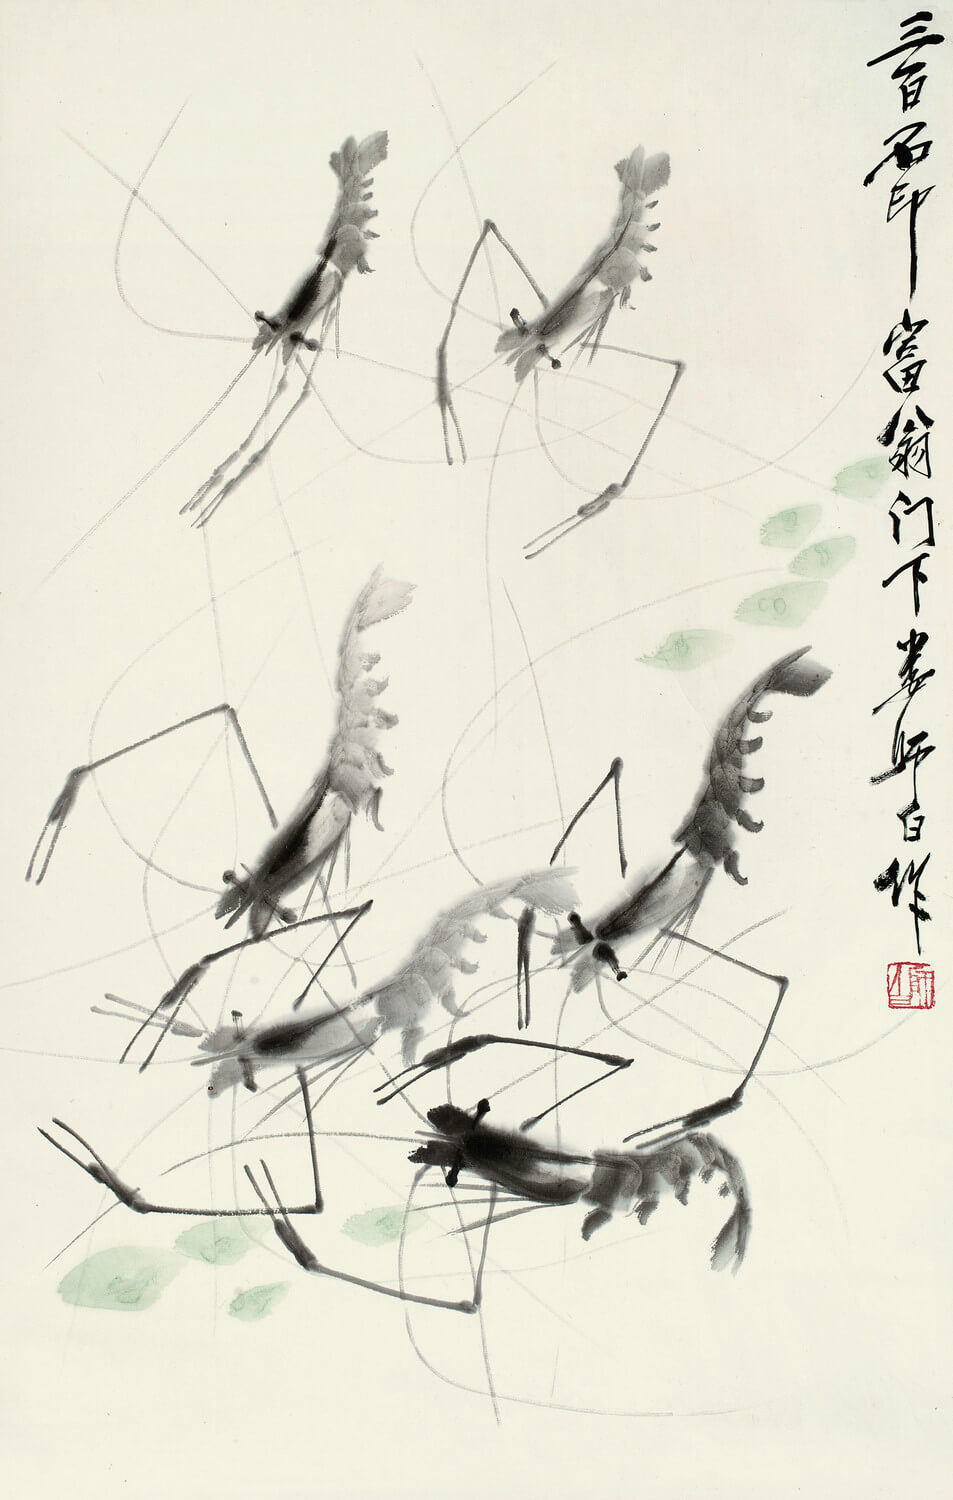 三百石印富翁门下娄师白作
师白